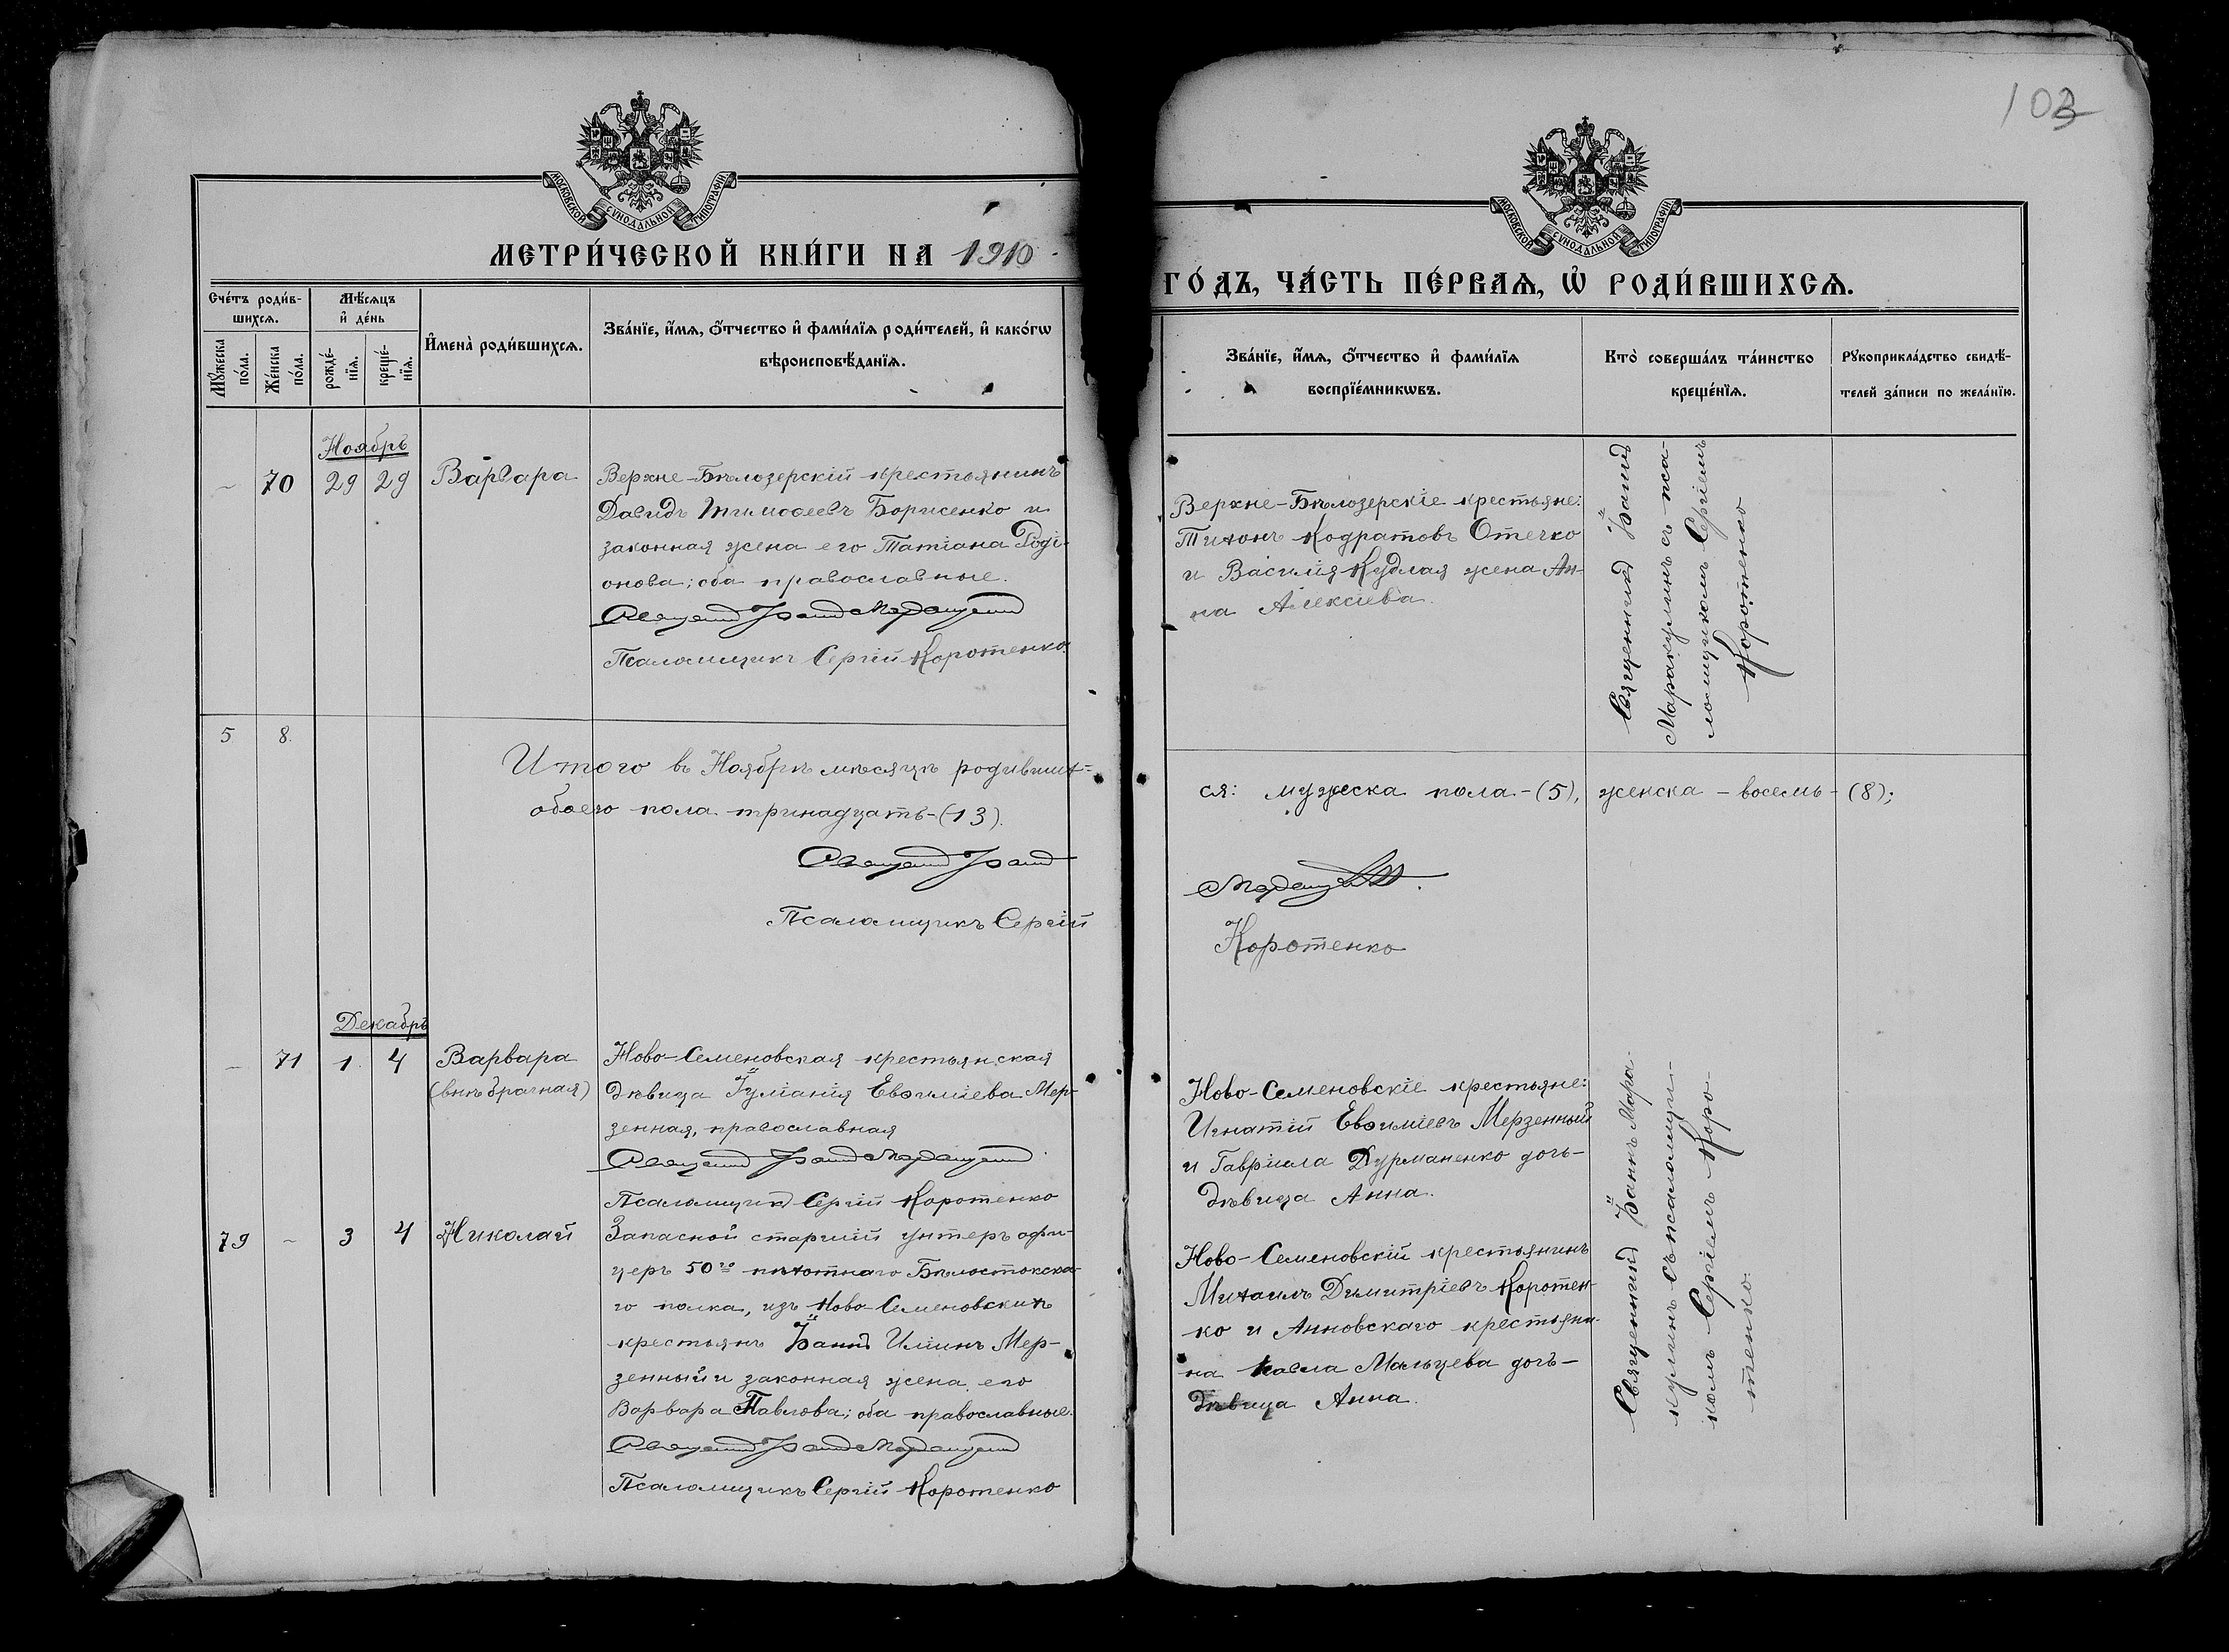 103
МОСКОВСКОЙ СУНОДАЛЬНОЙ ТИПОГРАФІИ
МОСКОВСКОЙ СУНОДАЛЬНОЙ ТИПОГРАФІИ
МЕТРИ́ЧЕСКОЙ КНИ́ГИ НА 1910
ГО́ДЪ, ЧА́СТЬ ПЕ́РВАѦ, Ѡ҆ РОДИ́ВШИХСѦ.
Сче́тъ роди́в-
шихсѧ.
Мѣ́сѧцъ
и҆ де́нь
Мꙋ́жеска
по́ла.
Же́нска
по́ла.
рожде́-
нїѧ.
креще́-
нїѧ.
И҆мена̀ роди́вшихсѧ.
Зва́нїе, и҆́мѧ, ѻ҆́тчество и҆ фами́лїѧ роди́телей, и҆ како́гѡ
вѣроисповѣ́данїѧ.
Зва́нїе, и҆́мѧ, ѻ҆́тчество и҆ фами́лїѧ
воспрїе́мникѡвъ.
Кто̀ соверша́лъ та́инство
креще́нїѧ.
Рꙋкоприкла́дство свидѣ́-
телей за́писи по жела́нїю.
Ноябрь
– 70 29 29 Варвара
Верхне-Бѣлозерскій крестьянинъ
Давидъ Тимоѳеевъ Борисенко и
законная жена его Татіана Роді-
онова; оба православные.
Священникъ Іоаннъ Маракулинъ
Псаломщикъ Сергій Коротенко
Верхне-Бѣлозерскіе крестьяне:
Тихонъ Кодратовъ Отечко
и Василія Кудлая жена Ан-
на Алексіева.
Священникъ Іоаннъ
Маракулинъ съ пса-
ломщикомъ Сергіемъ
Коротенко
5 8.
Итого въ Ноябрѣ мѣсяцѣ родивших-
ся: мужеска пола-(5), женска – восемь – (8);
обоего пола тринадцать-(13).
Священникъ Іоаннъ
Маракулинъ
Псаломщикъ Сергій
Коротенко
Декабрь
– 71 1. 4 Варвара
(внѣбрачная)
Ново-Семеновская крестьянская
дѣвица Іуліанія Евѳиміева Мер-
зенная, православная
Священникъ Іоаннъ Маракулинъ
Псаломщикъ Сергій Коротенко
Ново-Семеновскіе крестьяне:
Игнатій Евѳиміевъ Мерзенный
и Гавріила Дурманенко дочь-
дѣвица Анна.
79 – 3 4 Николай
Запасной старшій унтеръ офи-
церъ 50го пѣхотнаго Бѣлостокска-
го полка, изъ Ново-Семеновскихъ
крестьянъ Іоаннъ Иліинъ Мер-
зенный и законная жена его
Варвара Павлова; оба православные.
Священникъ Іоаннъ Маракулинъ
Псаломщикъ Сергій Коротенко
Ново-Семеновскій крестьянинъ
Михаилъ Димитріевъ Коротен-
ко и Анновскаго крестьяни-
на Павла Мальцева дочь-
дѣвица Анна.
Священникъ Іоаннъ Мара-
кулинъ съ псаломщи-
комъ Сергіемъ Коро-
тенко.